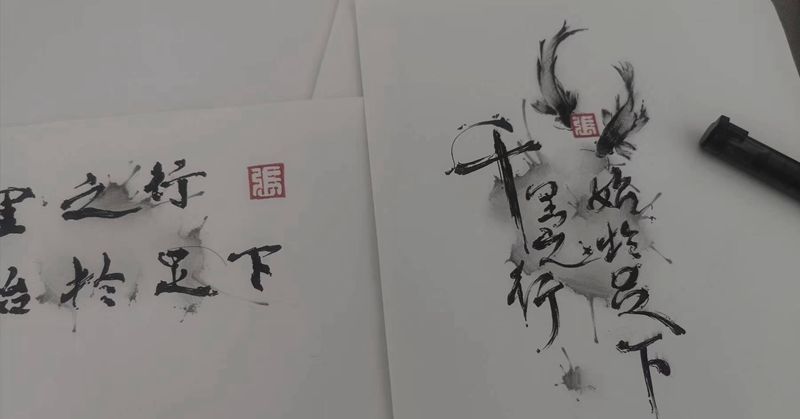 里之行
始於足下
張
千里之行
始於足下
張